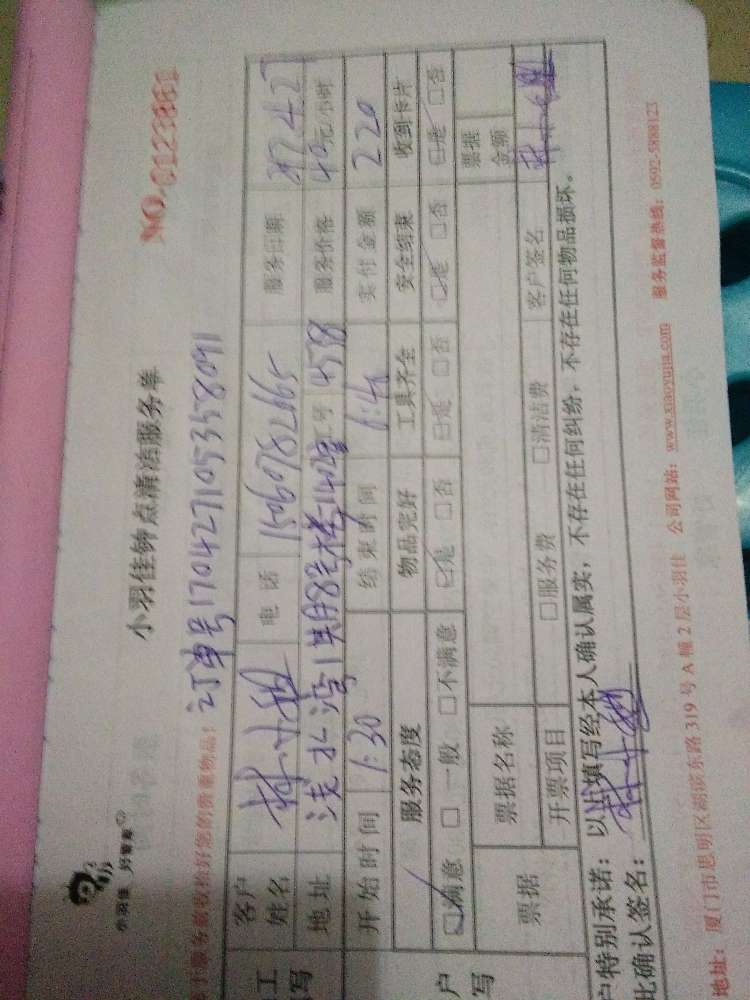 小羽佳 好管家
NO.0123861
小羽佳钟点清洁服务单
服务前收捡好您的贵重物品:
订单号170427105358091
客户姓名 林小 电话 15060782665 服务日期 17.4.27
地址 浅水湾1期8号楼 工号 458 服务价格 40元/小时
开始时间 1:30 结束时间 实付金额 220
服务态度 物品完好 工具齐全 安全结束 收到卡片
☑满意 □一般 □不满意 ☑是 □否 ☑是 □否 ☑是 □否 ☑是 □否
票据 票据名称 票据金额
开票项目 □服务费 □清洁费 客户签名 林小
户特别承诺: 以上填写经本人确认属实,不存在任何纠纷,不存在任何物品损坏。
此确认签名: 林小
地址: 厦门市思明区湖滨东路319号A幢2层小羽佳 公司网站: www.xiaoyujia.com 服务监督热线: 0592-5888123